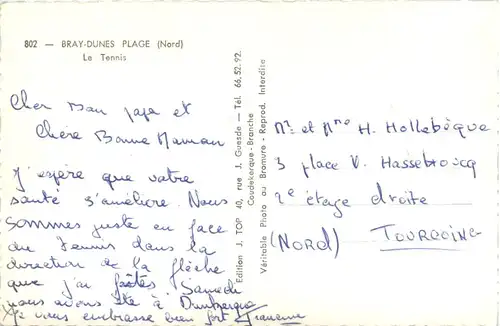 802 — BRAY-DUNES PLAGE (Nord)
Le Tennis
Cher Bon papa et
Chère Bonne Maman
J'espère que votre
santé s'améliore. Nous
sommes juste en face
du Tennis dans la
direction de la flèche
que j'ai faites Samedi
nous avons été à Dunkerque
Je vous embrasse bien fort
Edition J. TOP 40, rue J. Guesde — Tél. 66.52.92.
Coudekerque-Branche
Véritable Photo au Bromure - Reprod. Interdite
Mr et Mme H. Hollebèque
3 place V. Hassebroucq
2e étage droite
(NORD) TOURCOING